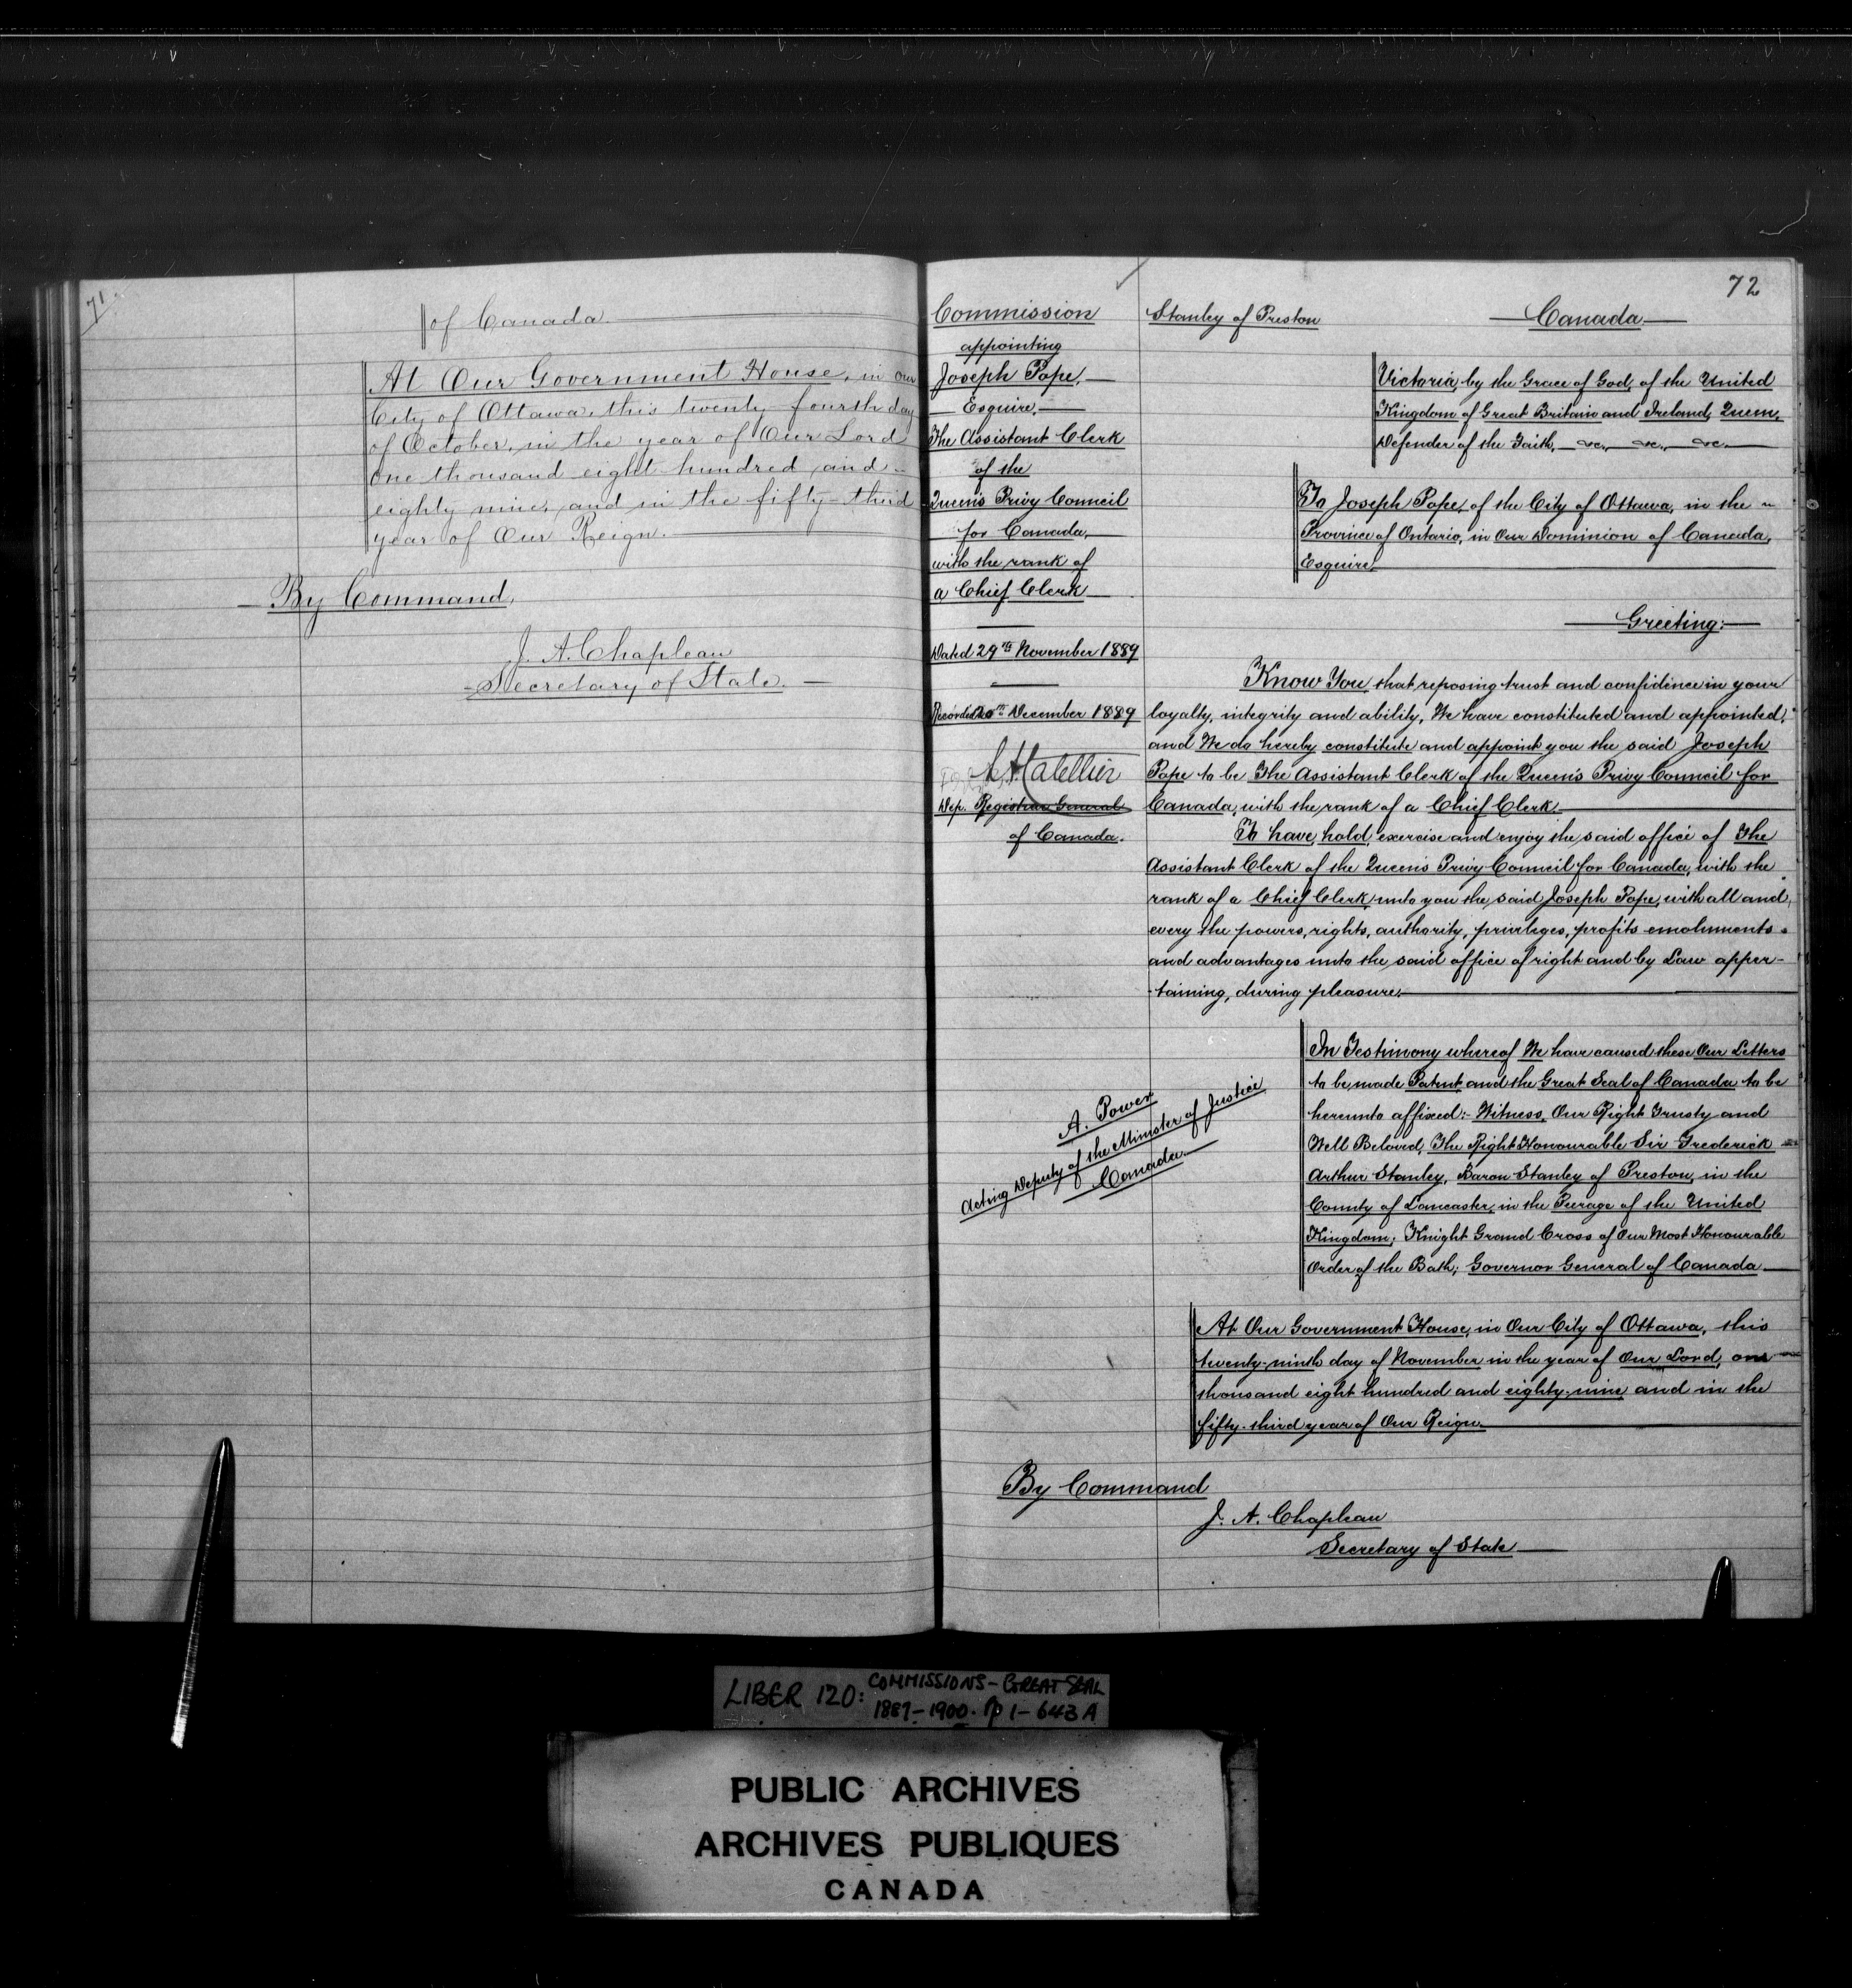 71
of Canada.
At Our Government House, in our
City of Ottawa, this twenty-fourth day
of October, in the year of Our Lord
one thousand eight hundred and
eighty nine, and in the fifty-third
year of Our Reign.
By Command,
J. A. Chapleau
Secretary of State.
72
Commission
appointing
Joseph Pope,
Esquire,
The Assistant Clerk
of the
Queen's Privy Council
for Canada,
with the rank of
a Chief Clerk
Dated 29th November 1889
Recorded 20th December 1889
Dep. Registrar General
of Canada.
Stanley of Preston
Canada
Victoria, by the Grace of God, of the United
Kingdom of Great Britain and Ireland, Queen,
Defender of the Faith, &c., &c., &c.
To Joseph Pope, of the City of Ottawa, in the
Province of Ontario, in Our Dominion of Canada,
Esquire,
Greeting:
Know You, that reposing trust and confidence in your
loyalty, integrity and ability, We have constituted and appointed,
and We do hereby constitute and appoint you the said Joseph
Pope to be The Assistant Clerk of the Queen's Privy Council for
Canada, with the rank of a Chief Clerk.
To have, hold, exercise and enjoy the said office of The
Assistant Clerk of the Queen's Privy Council for Canada, with the
rank of a Chief Clerk, unto you the said Joseph Pope, with all and
every the powers, rights, authority, privileges, profits emoluments
and advantages unto the said office of right and by Law apper-
-taining, during pleasure.
In Testimony whereof We have caused these Our Letters
to be made Patent and the Great Seal of Canada to be
hereunto affixed:- Witness, Our Right Trusty and
Well Beloved, The Right Honourable Sir Frederick
Arthur Stanley, Baron Stanley of Preston, in the
County of Lancaster, in the Peerage of the United
Kingdom; Knight Grand Cross of Our Most Honourable
Order of the Bath; Governor General of Canada
A. Power
Acting Deputy of the Minister of Justice
Canada
At Our Government House, in Our City of Ottawa, this
twenty-ninth day of November in the year of Our Lord, one
thousand eight hundred and eighty-nine and in the
fifty-third year of Our Reign.
By Command
J. A. Chapleau
Secretary of State
LIBER 120: COMMISSIONS - GREAT SEAL
1887-1900. pp 1-643A
PUBLIC ARCHIVES
ARCHIVES PUBLIQUES
CANADA